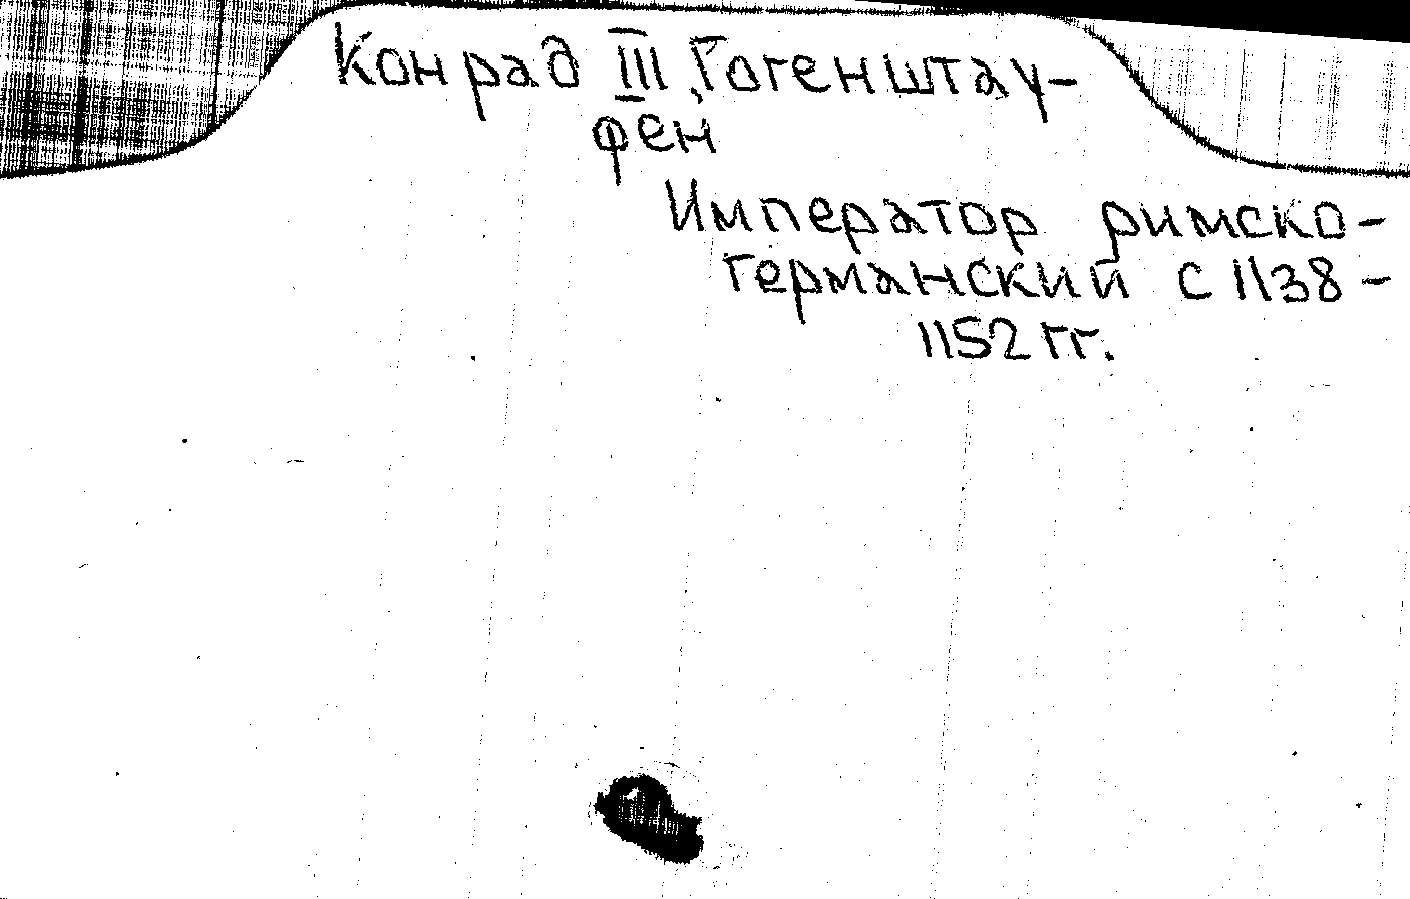 Конрад III, Гогенштау-
фен
Император римско-
германский с 1138-
1152 гг.